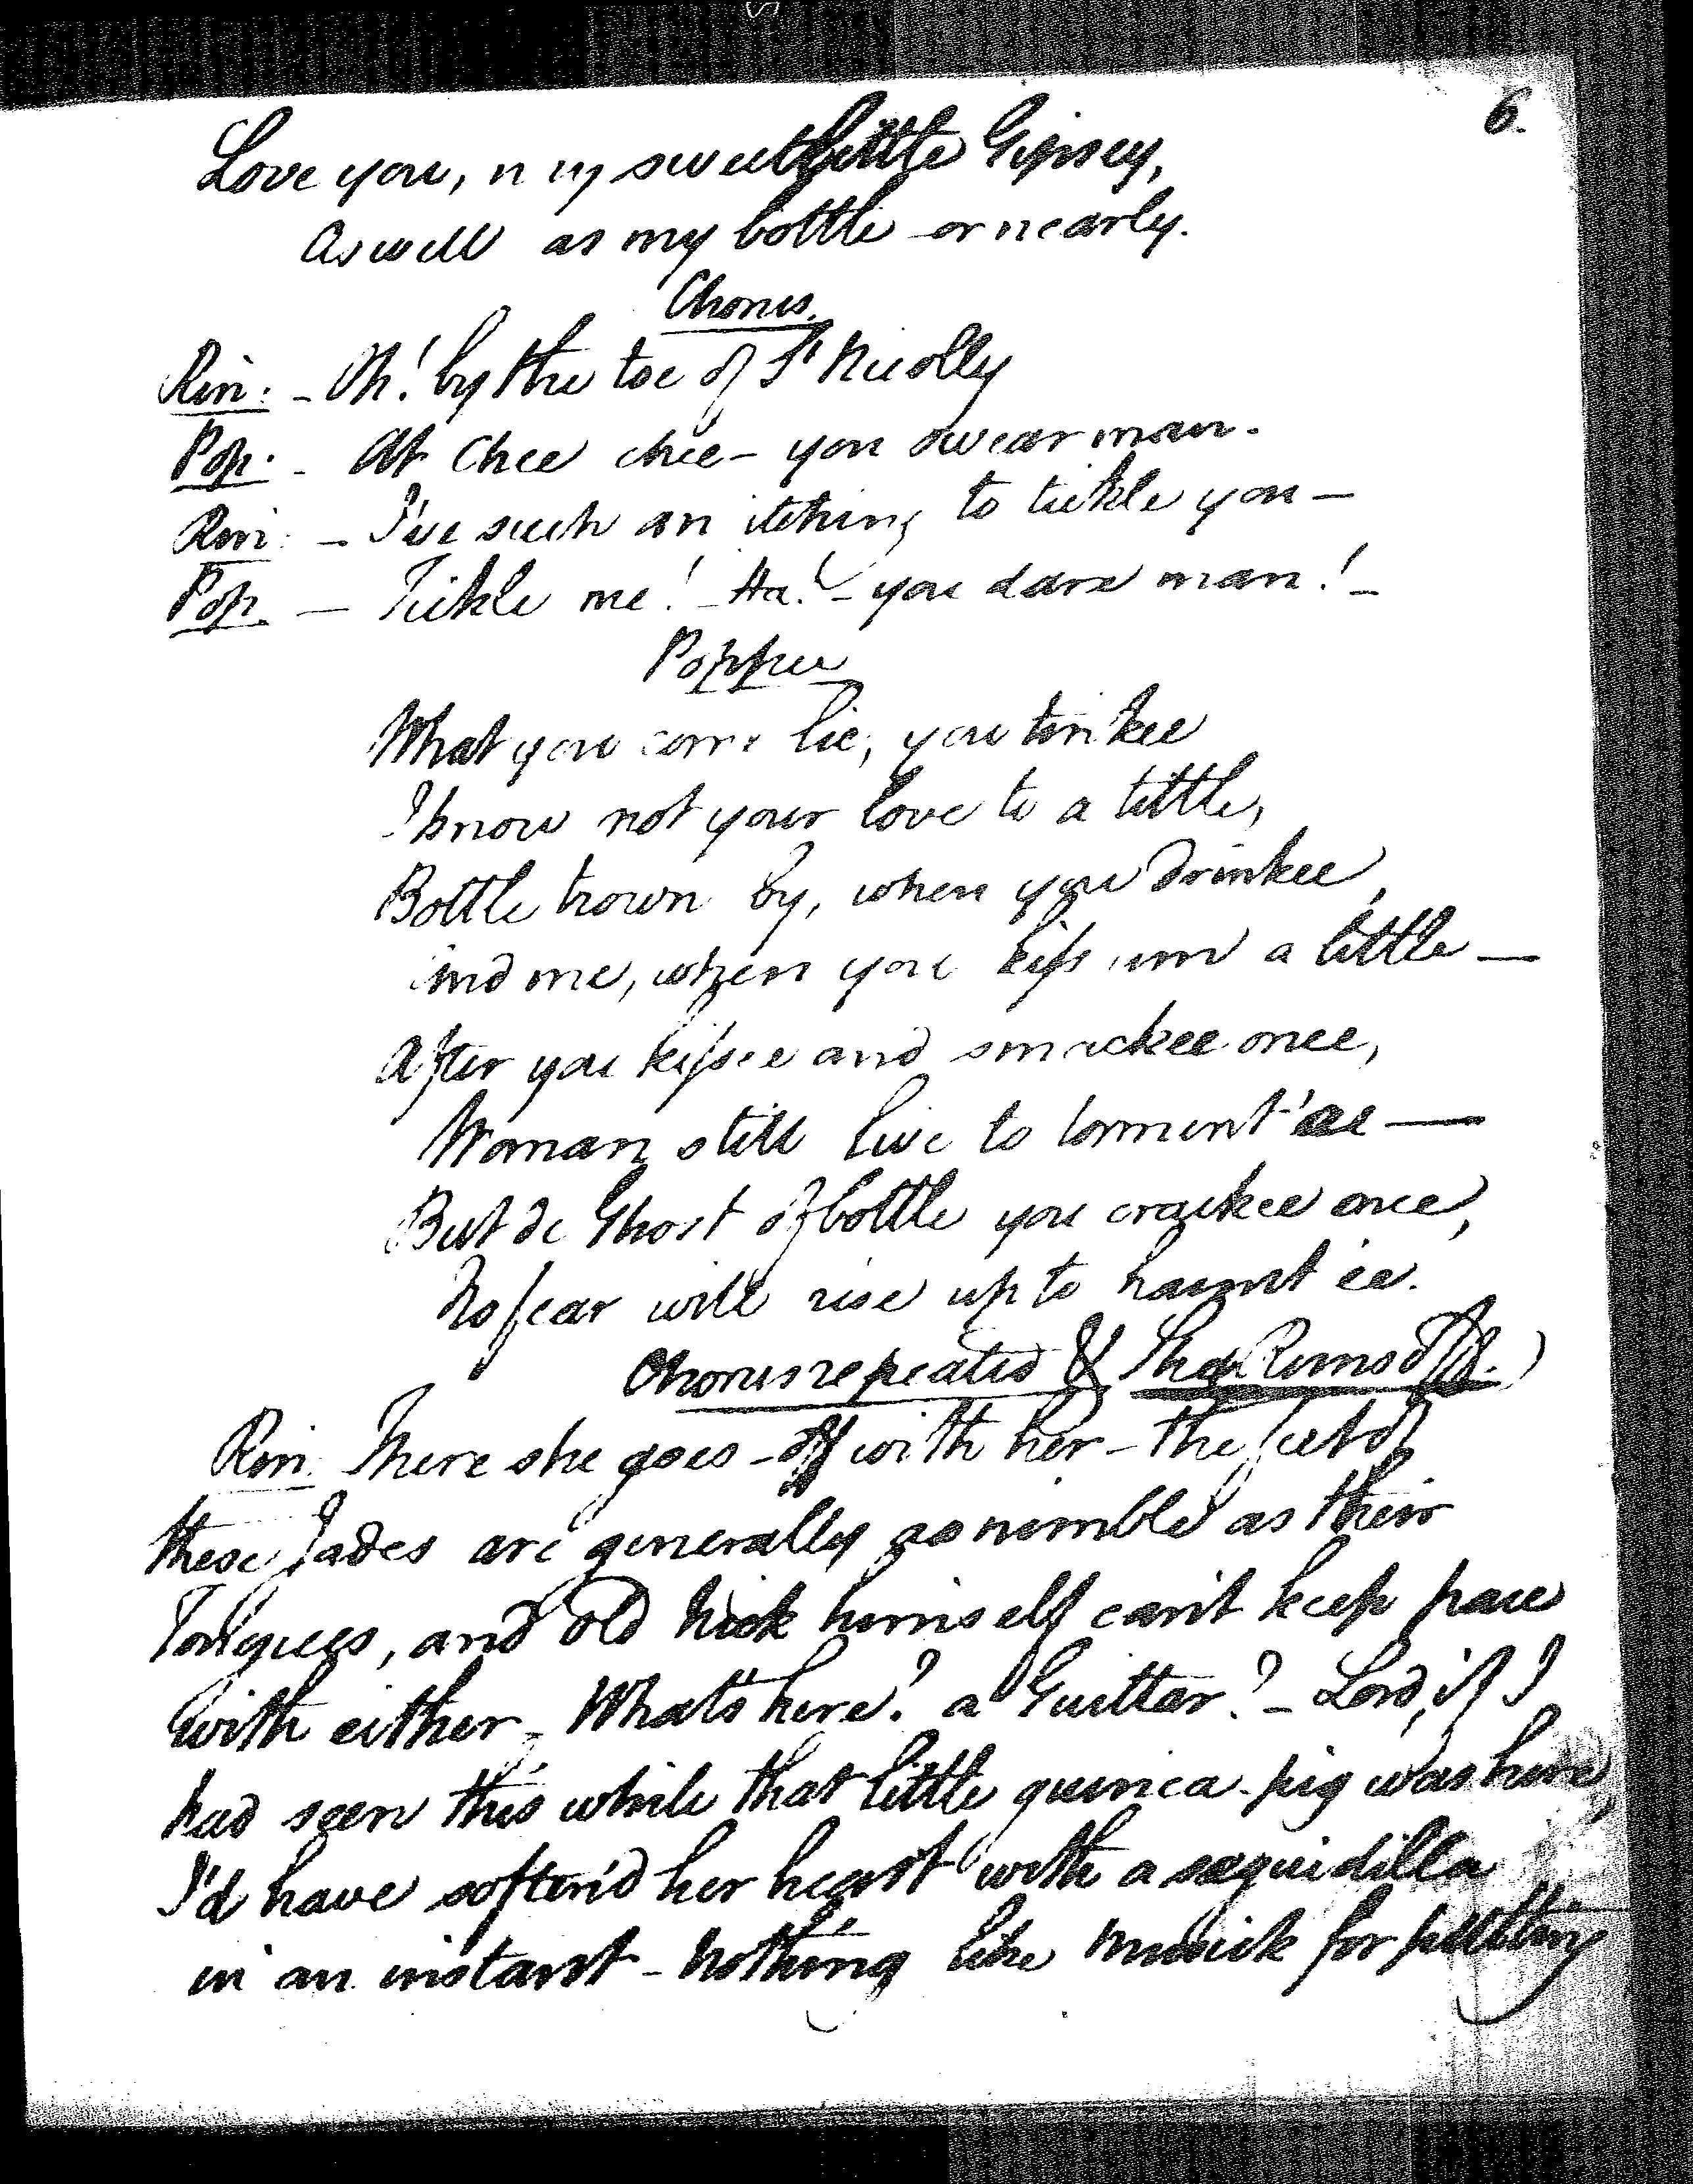 6.
Love you, my sweet little Gipsey,
As well as my bottle or nearly.
Chorus.
Rin. - Oh! by the toe of St Nicolly
Pop. - At Chee chee - you swear man.
Rin. - I've such an itching to tickle you -
Pop. - Tickle me! - Ha! - you dare man! -
Poppee
What you come lie, you tinkee
I know not your love to a tittle,
Bottle trown by, when you drinkee,
And me, when you kiss um a little -
After you kissee and smackee once,
Woman still live to torment 'ee -
But de Ghost of bottle you crackee once,
No fear will rise up to haunt ee.
Chorus repeated & She Runs Off.)
Rin. There she goes - off with her - the feet of
these Jades are generally as nimble as their
Tongues, and old Nick himself can't keep pace
with either - What's here? a Guittar? - Lord, if I
had seen this while that little guinea-pig was here,
I'd have soften'd her heart with a sequidilla
in an instant - Nothing like Musick for putting